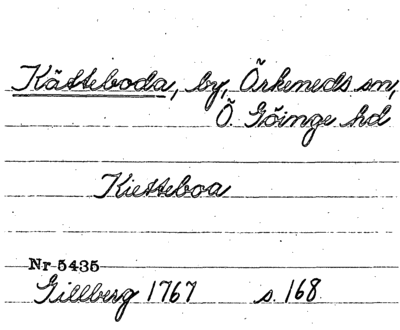 Kätteboda, by, Örkeneds sn,
Ö. Göinge hd
Kietteboa
Nr 5435
Gillberg 1767 s. 168